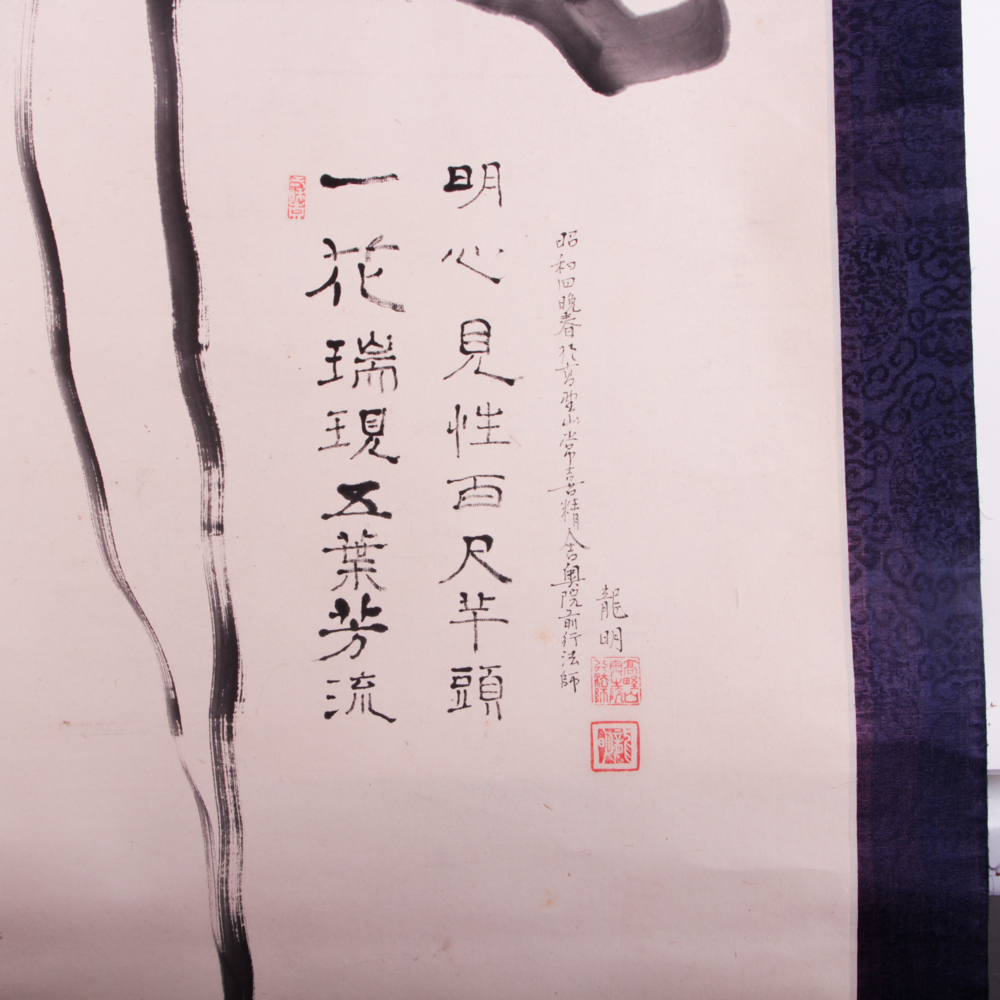 一花瑞現五葉芳流
明心見性百尺竿頭
昭和四晩春於高野山常喜精舎奥院前行法師
龍明
龍明